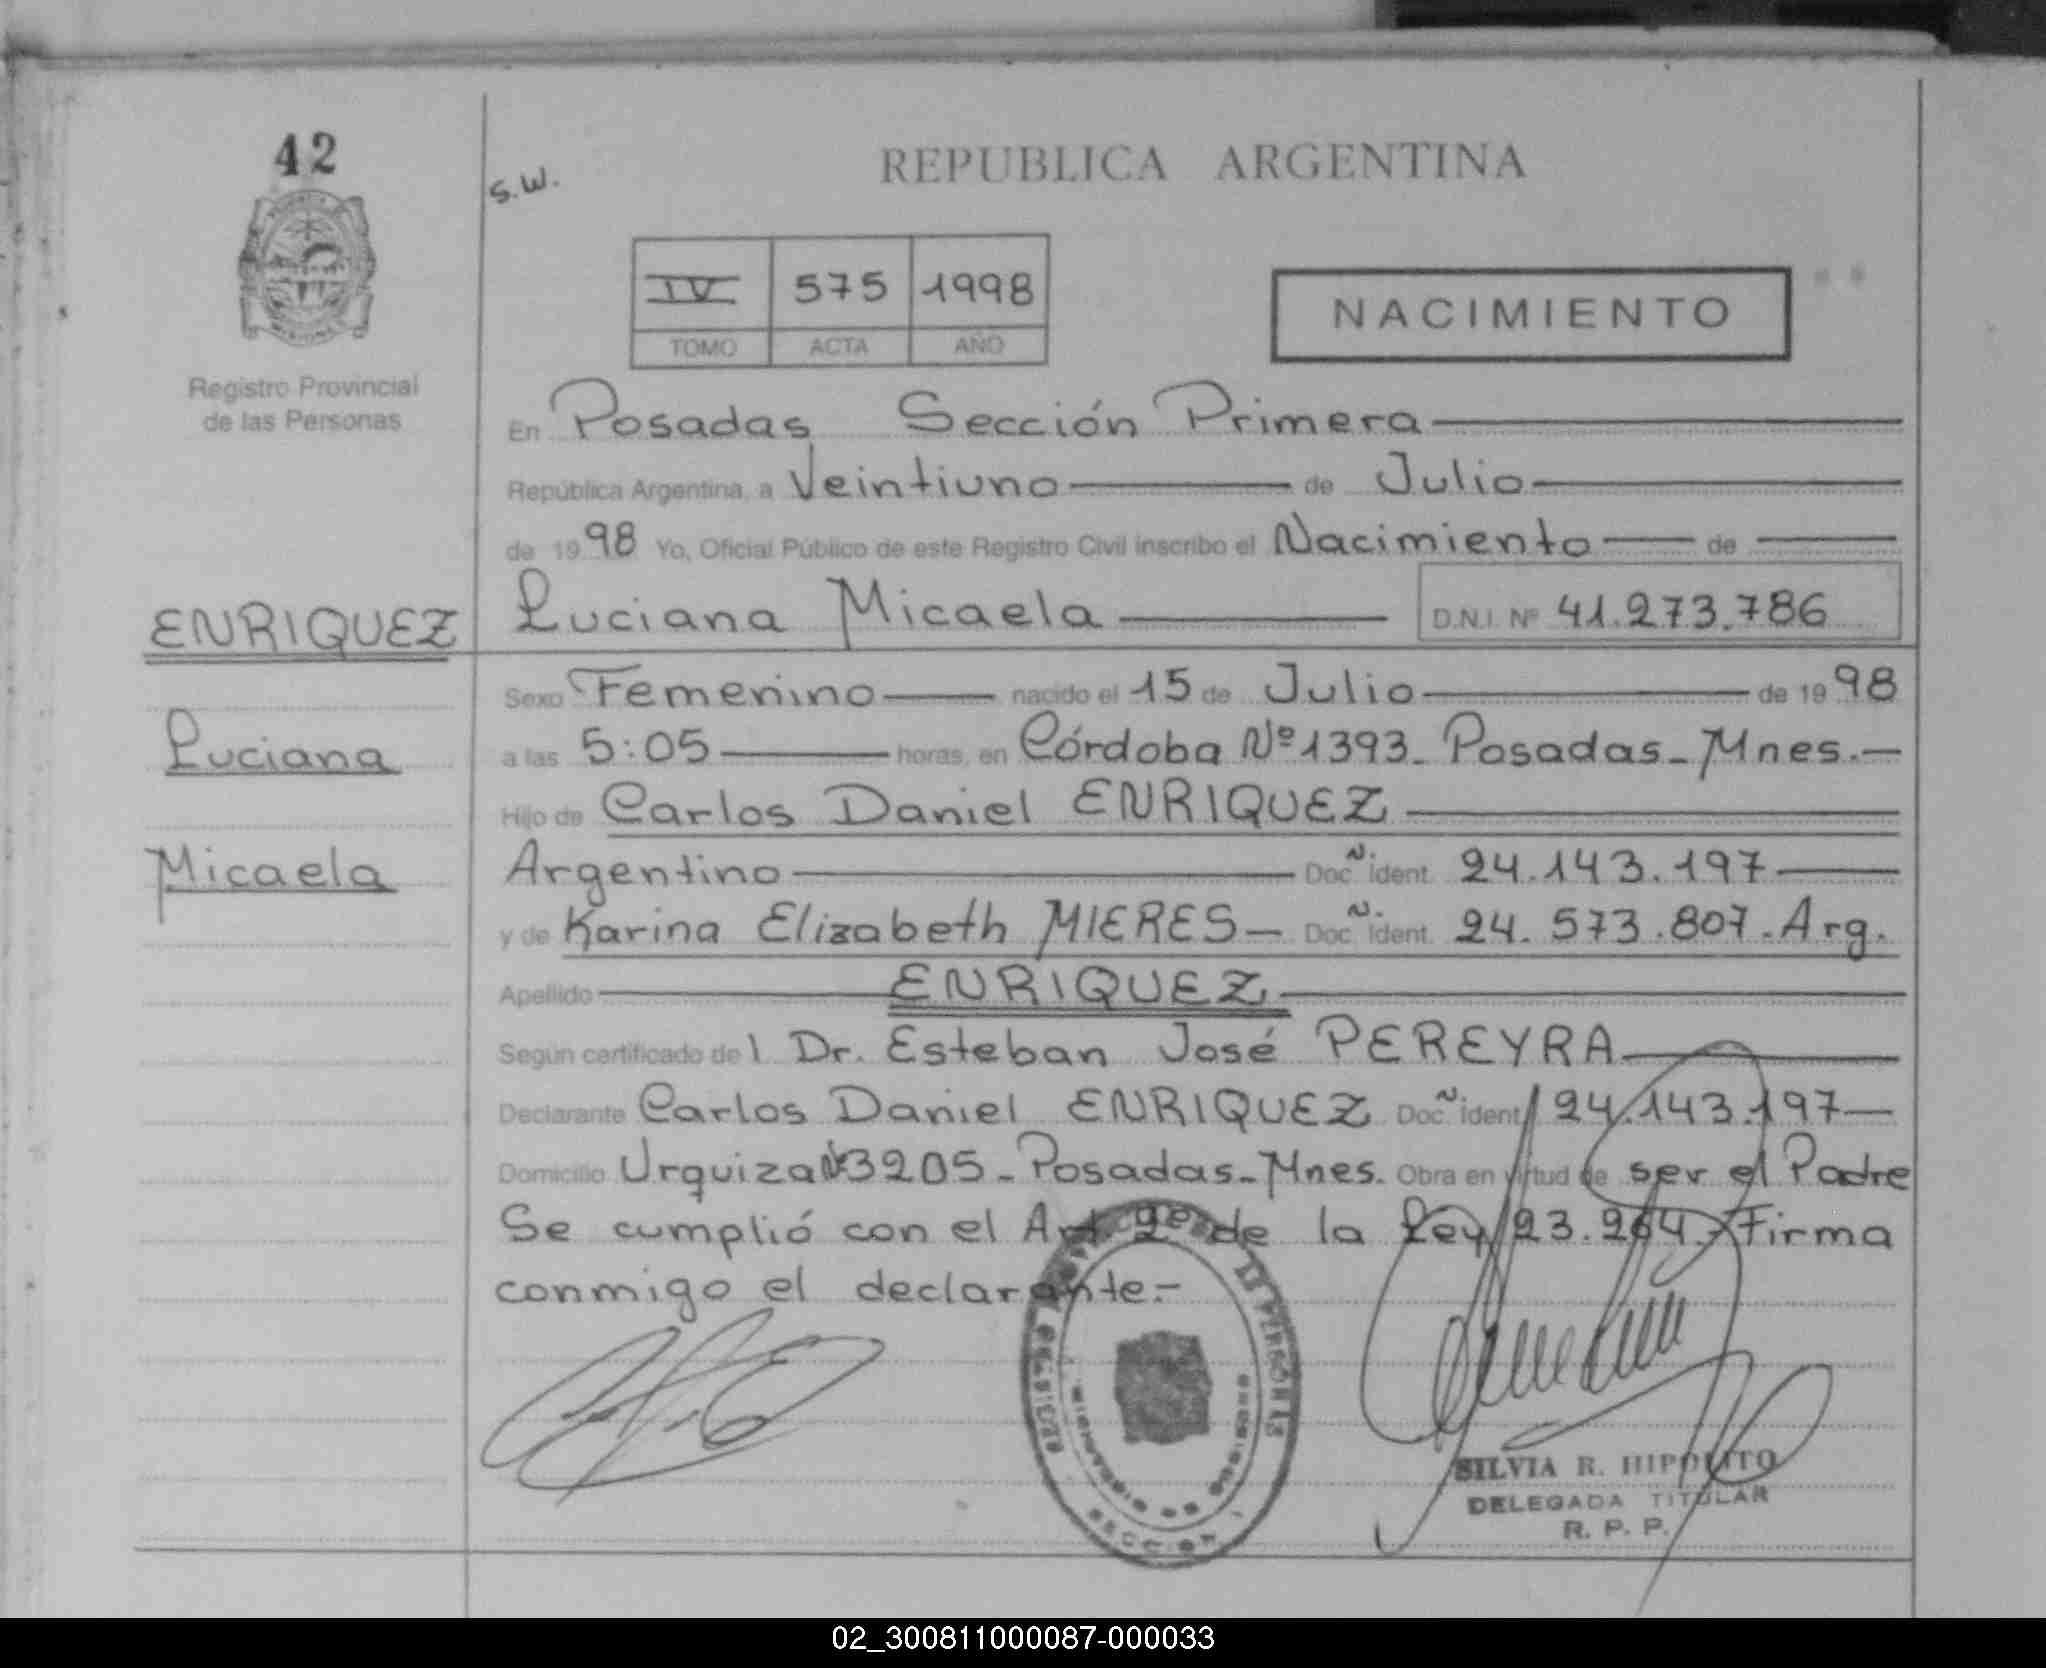 42
S.W.
REPUBLICA ARGENTINA
IV 575 1998
TOMO ACTA AÑO
NACIMIENTO
Registro Provincial
de las Personas
En Posadas Sección Primera
República Argentina, a Veintiuno de Julio
de 1998 Yo, Oficial Público de este Registro Civil inscribo el Nacimiento de
ENRIQUEZ
Luciana Micaela D.N.I. Nº 41.273.786
Sexo Femenino nacido el 15 de Julio de 1998
Luciana
a las 5:05 horas, en Córdoba Nº 1393_ Posadas_ Mnes.-
Hijo de Carlos Daniel ENRIQUEZ
Micaela
Argentino Doc. Ident. 24.143.197
y de Karina Elizabeth MIERES- Doc. Ident. 24.573.807. Arg.
Apellido ENRIQUEZ
Según certificado del Dr. Esteban José PEREYRA
Declarante Carlos Daniel ENRIQUEZ Doc. Ident. 24.143.197
Domicilio Urquiza Nº 3205_ Posadas_ Mnes. Obra en virtud de ser el Padre
Se cumplió con el Art. 2º de la Ley 23.264. Firma
conmigo el declarante.-
SILVIA R. HIPOLITO
DELEGADA TITULAR
R. P. P.
02_300811000087-000033